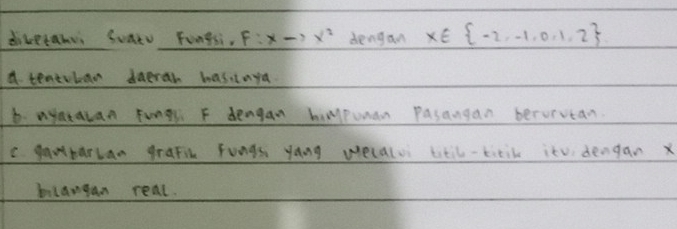 diketahui suatu Fungsi, F : x → x² dengan x ∈ {-2, -1, 0, 1, 2}.
a. tentukan daerah hasilnya.
b. nyatakan Fungsi F dengan himpunan Pasangan berurutan.
c. gambarkan grafik Fungsi yang melalui titik-titik itu, dengan x
bilangan real.